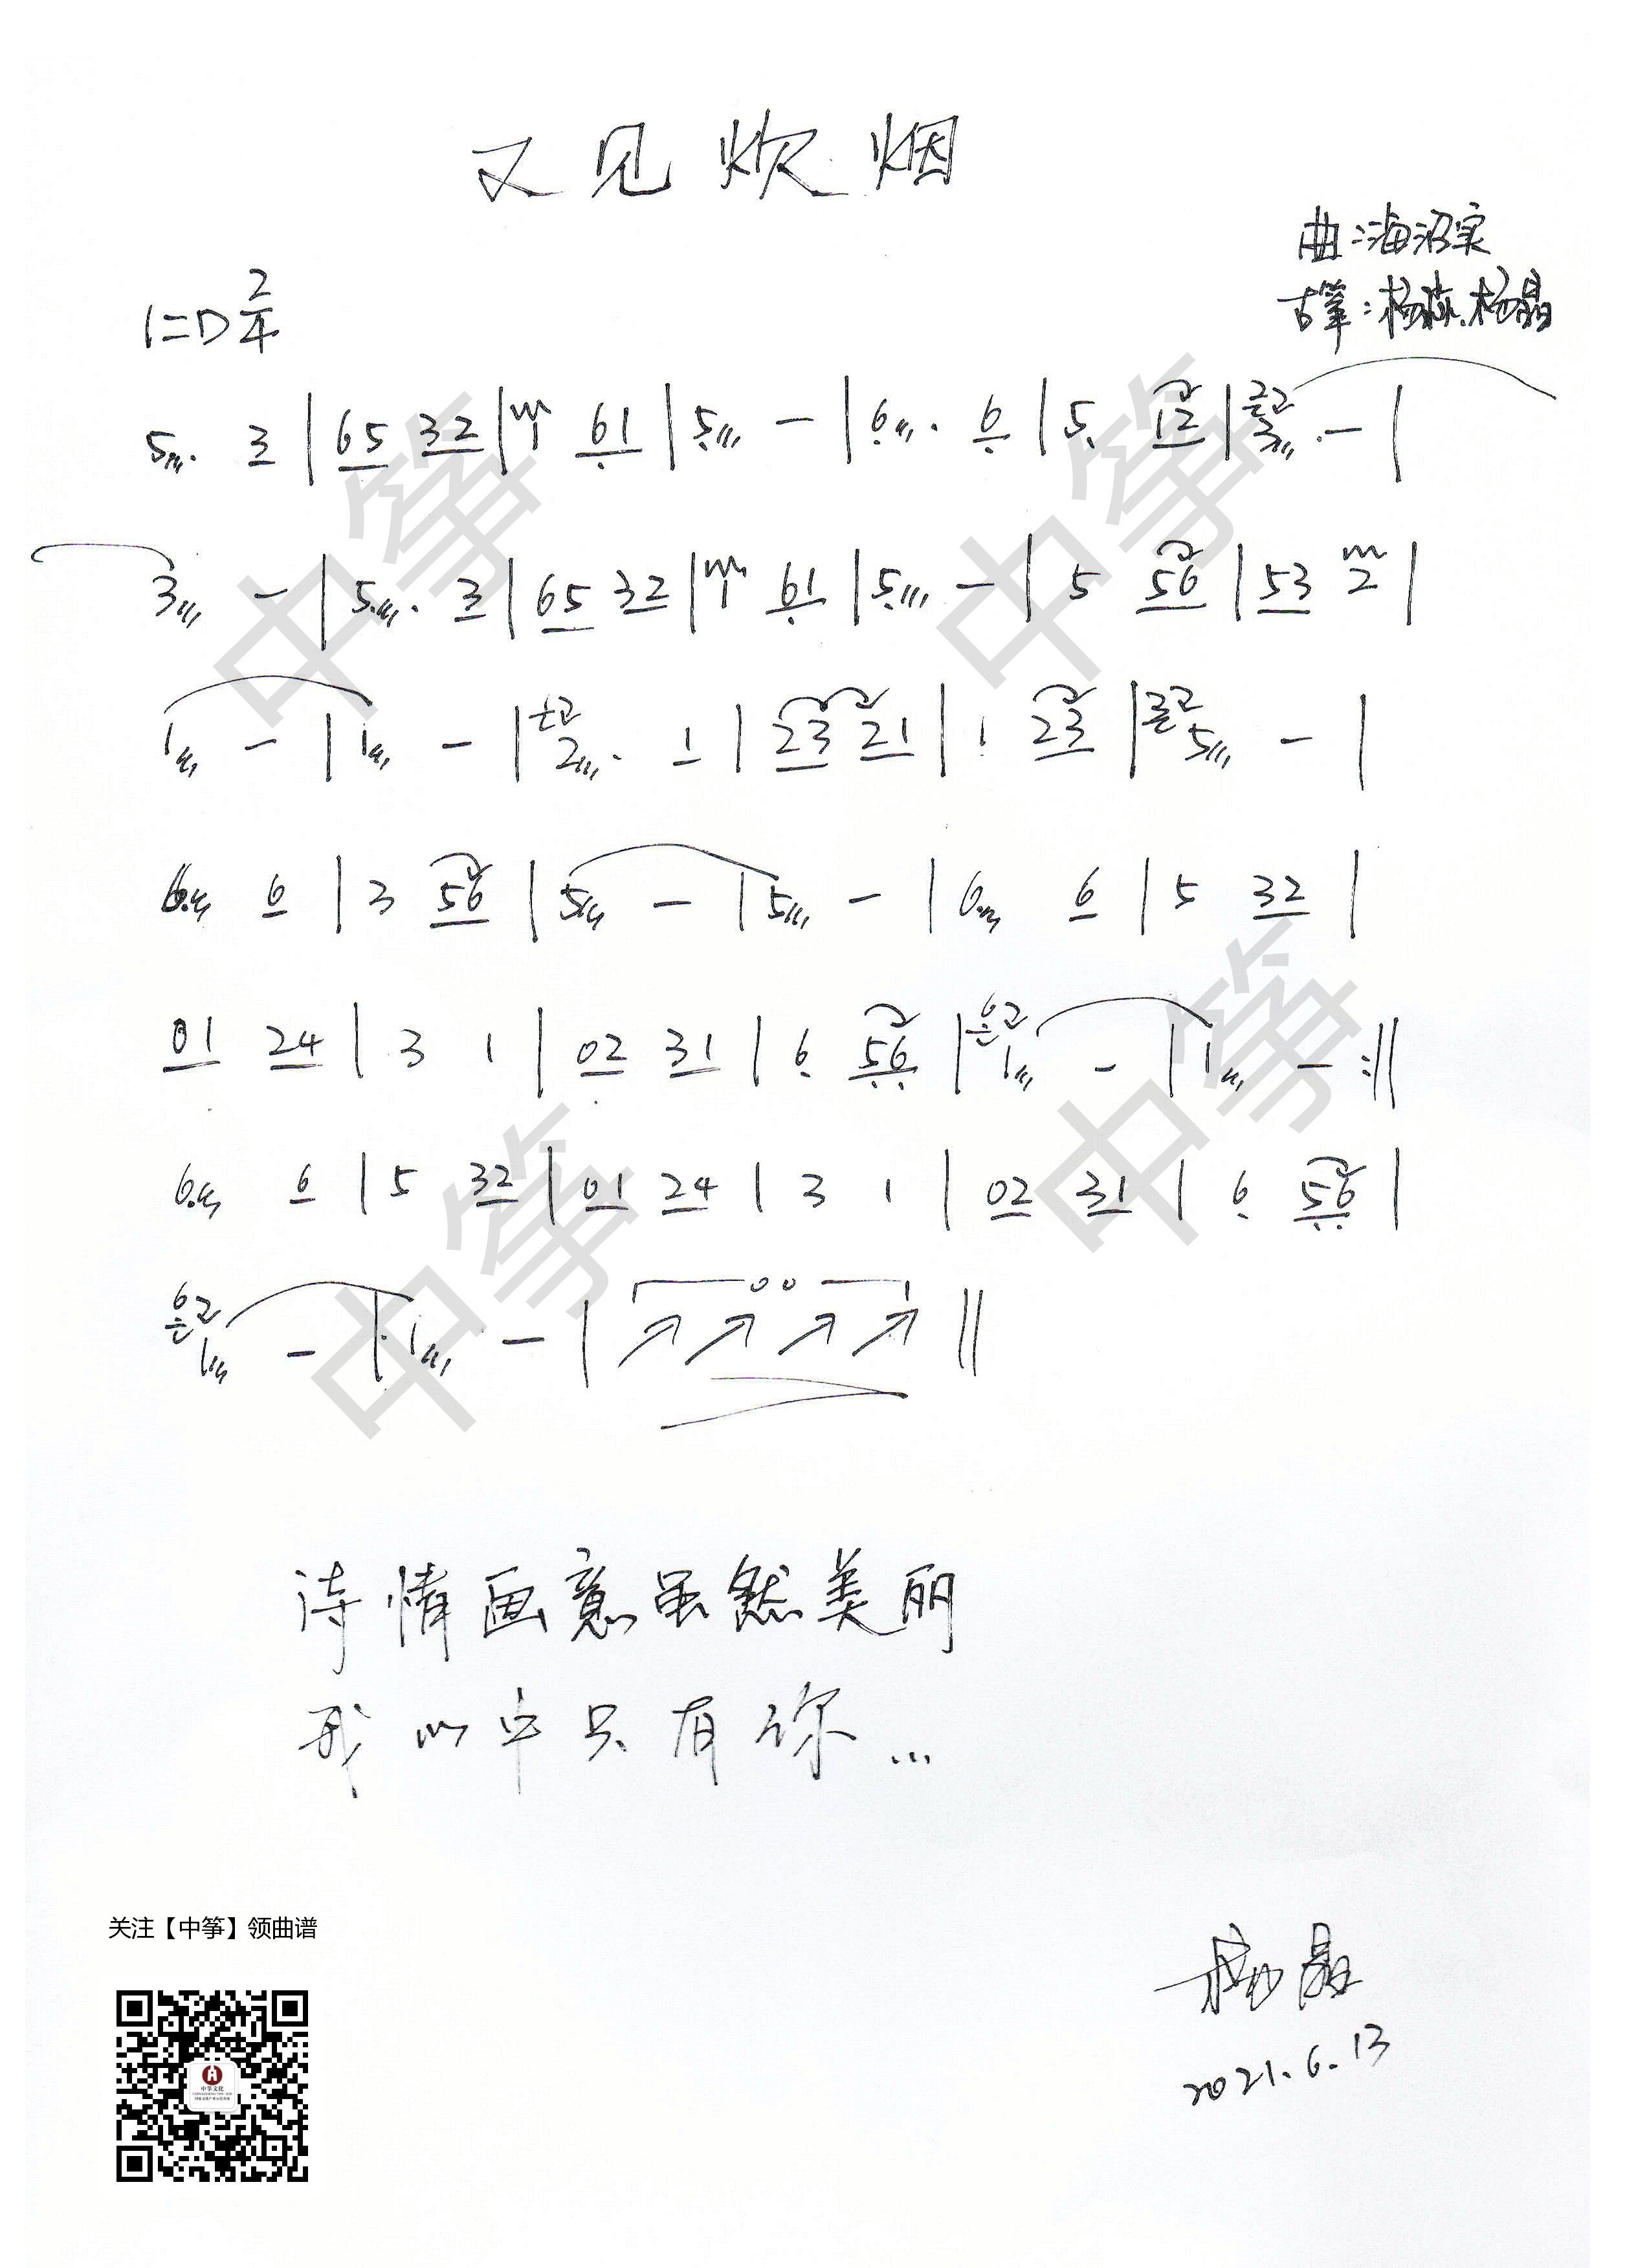 又见炊烟
曲:海沼实
古筝:杨 、杨晶
1=D 2/4
5. 3 | 65 32 | 1 61 | 5 - | 6. 6 | 5 12 | 3 - |
3 - | 5. 3 | 65 32 | 1 61 | 5 - | 5 56 | 53 2 |
1 - | 1 - | 2. 1 | 23 21 | 1 23 | 5 - |
6. 6 | 3 56 | 5 - | 5 - | 6. 6 | 5 32 |
01 24 | 3 1 | 02 31 | 6 56 | 1 - | 1 - :||
6. 6 | 5 32 | 01 24 | 3 1 | 02 31 | 6 56 |
1 - | 1 - | ↗ ↗ ↗ ↗ ||
诗情画意虽然美丽
我心中只有你...
关注【中筝】领曲谱
杨晶
2021.6.13
中筝
中筝
中筝
中筝
中筝文化